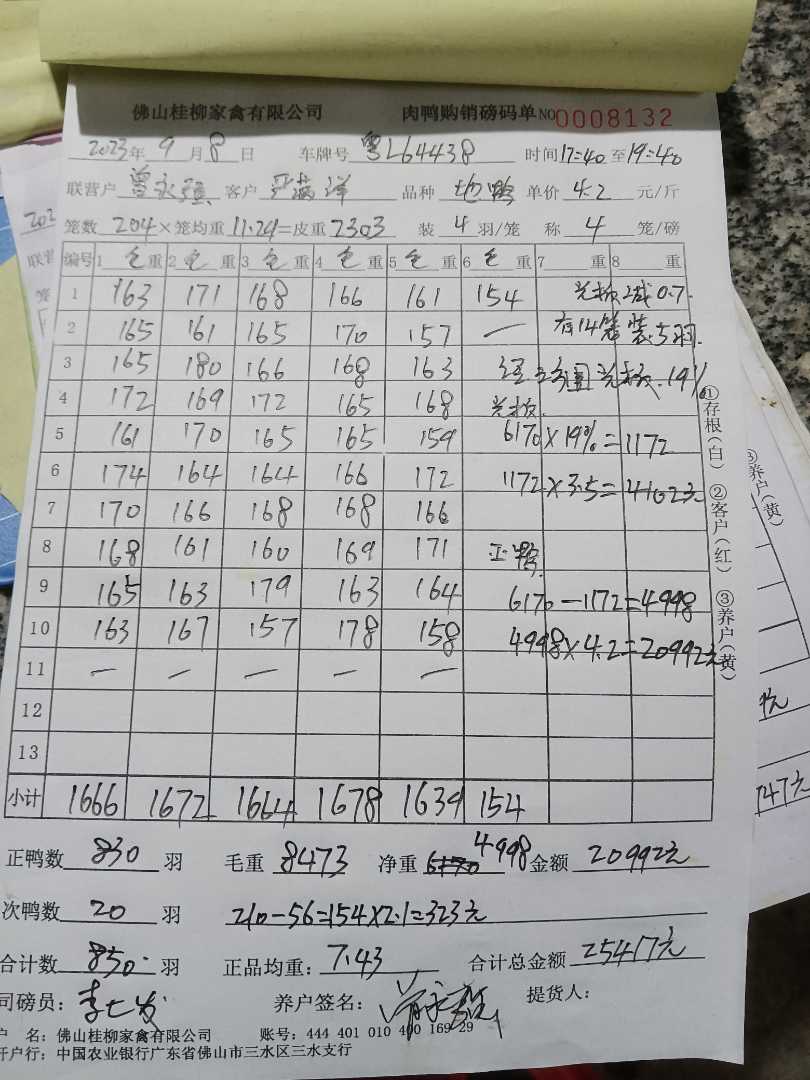 佛山桂柳家禽有限公司 肉鸭购销磅码单 NO 0008132
2023年 9月 8日 车牌号 粤L64438 时间 17:40 至 19:40
联营户 客户 品种 单价 4.2 元/斤
笼数 204 × 笼均重 11.29 = 皮重 2303 装 4 羽/笼 称 4 笼/磅
编号 1 毛重 2 毛重 3 毛重 4 毛重 5 毛重 6 毛重 7 重 8 重
1 163 171 168 166 161 154 光板减0.7.
2 165 161 165 170 157 — 有14笼装5羽.
3 165 180 166 168 163 光板.19%
4 172 169 172 165 168 光板.
5 161 170 165 165 159 6170×19%=1172
6 174 164 164 166 172 1172×3.5=4102元
7 170 166 168 168 166
8 168 161 160 169 171 正鸭
9 165 163 179 163 164 6170-1172=4998
10 163 167 157 178 158 4998×4.2=20992元
11 — — — — —
12
13
小计 1666 1672 1664 1678 1639 154
①存根(白) ②客户(红) ③养户(黄)
正鸭数 830 羽 毛重 8473 净重 6170 4998 金额 20992元
次鸭数 20 羽 210-56=154×2.1=323元
合计数 850 羽 正品均重: 7.43 合计总金额 25417元
司磅员: 李七发 养户签名: 提货人:
户 名: 佛山桂柳家禽有限公司 账号: 444 401 010 400 169 29
开户行: 中国农业银行广东省佛山市三水区三水支行
202
联营
③养户(黄)
747元